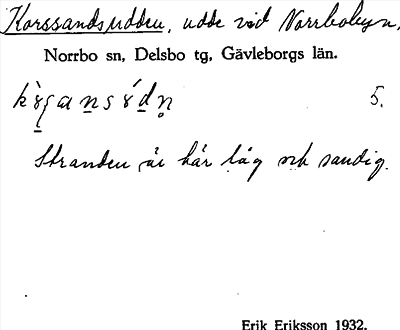 Korssandsudden, udde vid Norrbobyn,
Norrbo sn, Delsbo tg, Gävleborgs län.
5.
Stranden är här låg och sandig.
Erik Eriksson 1932.